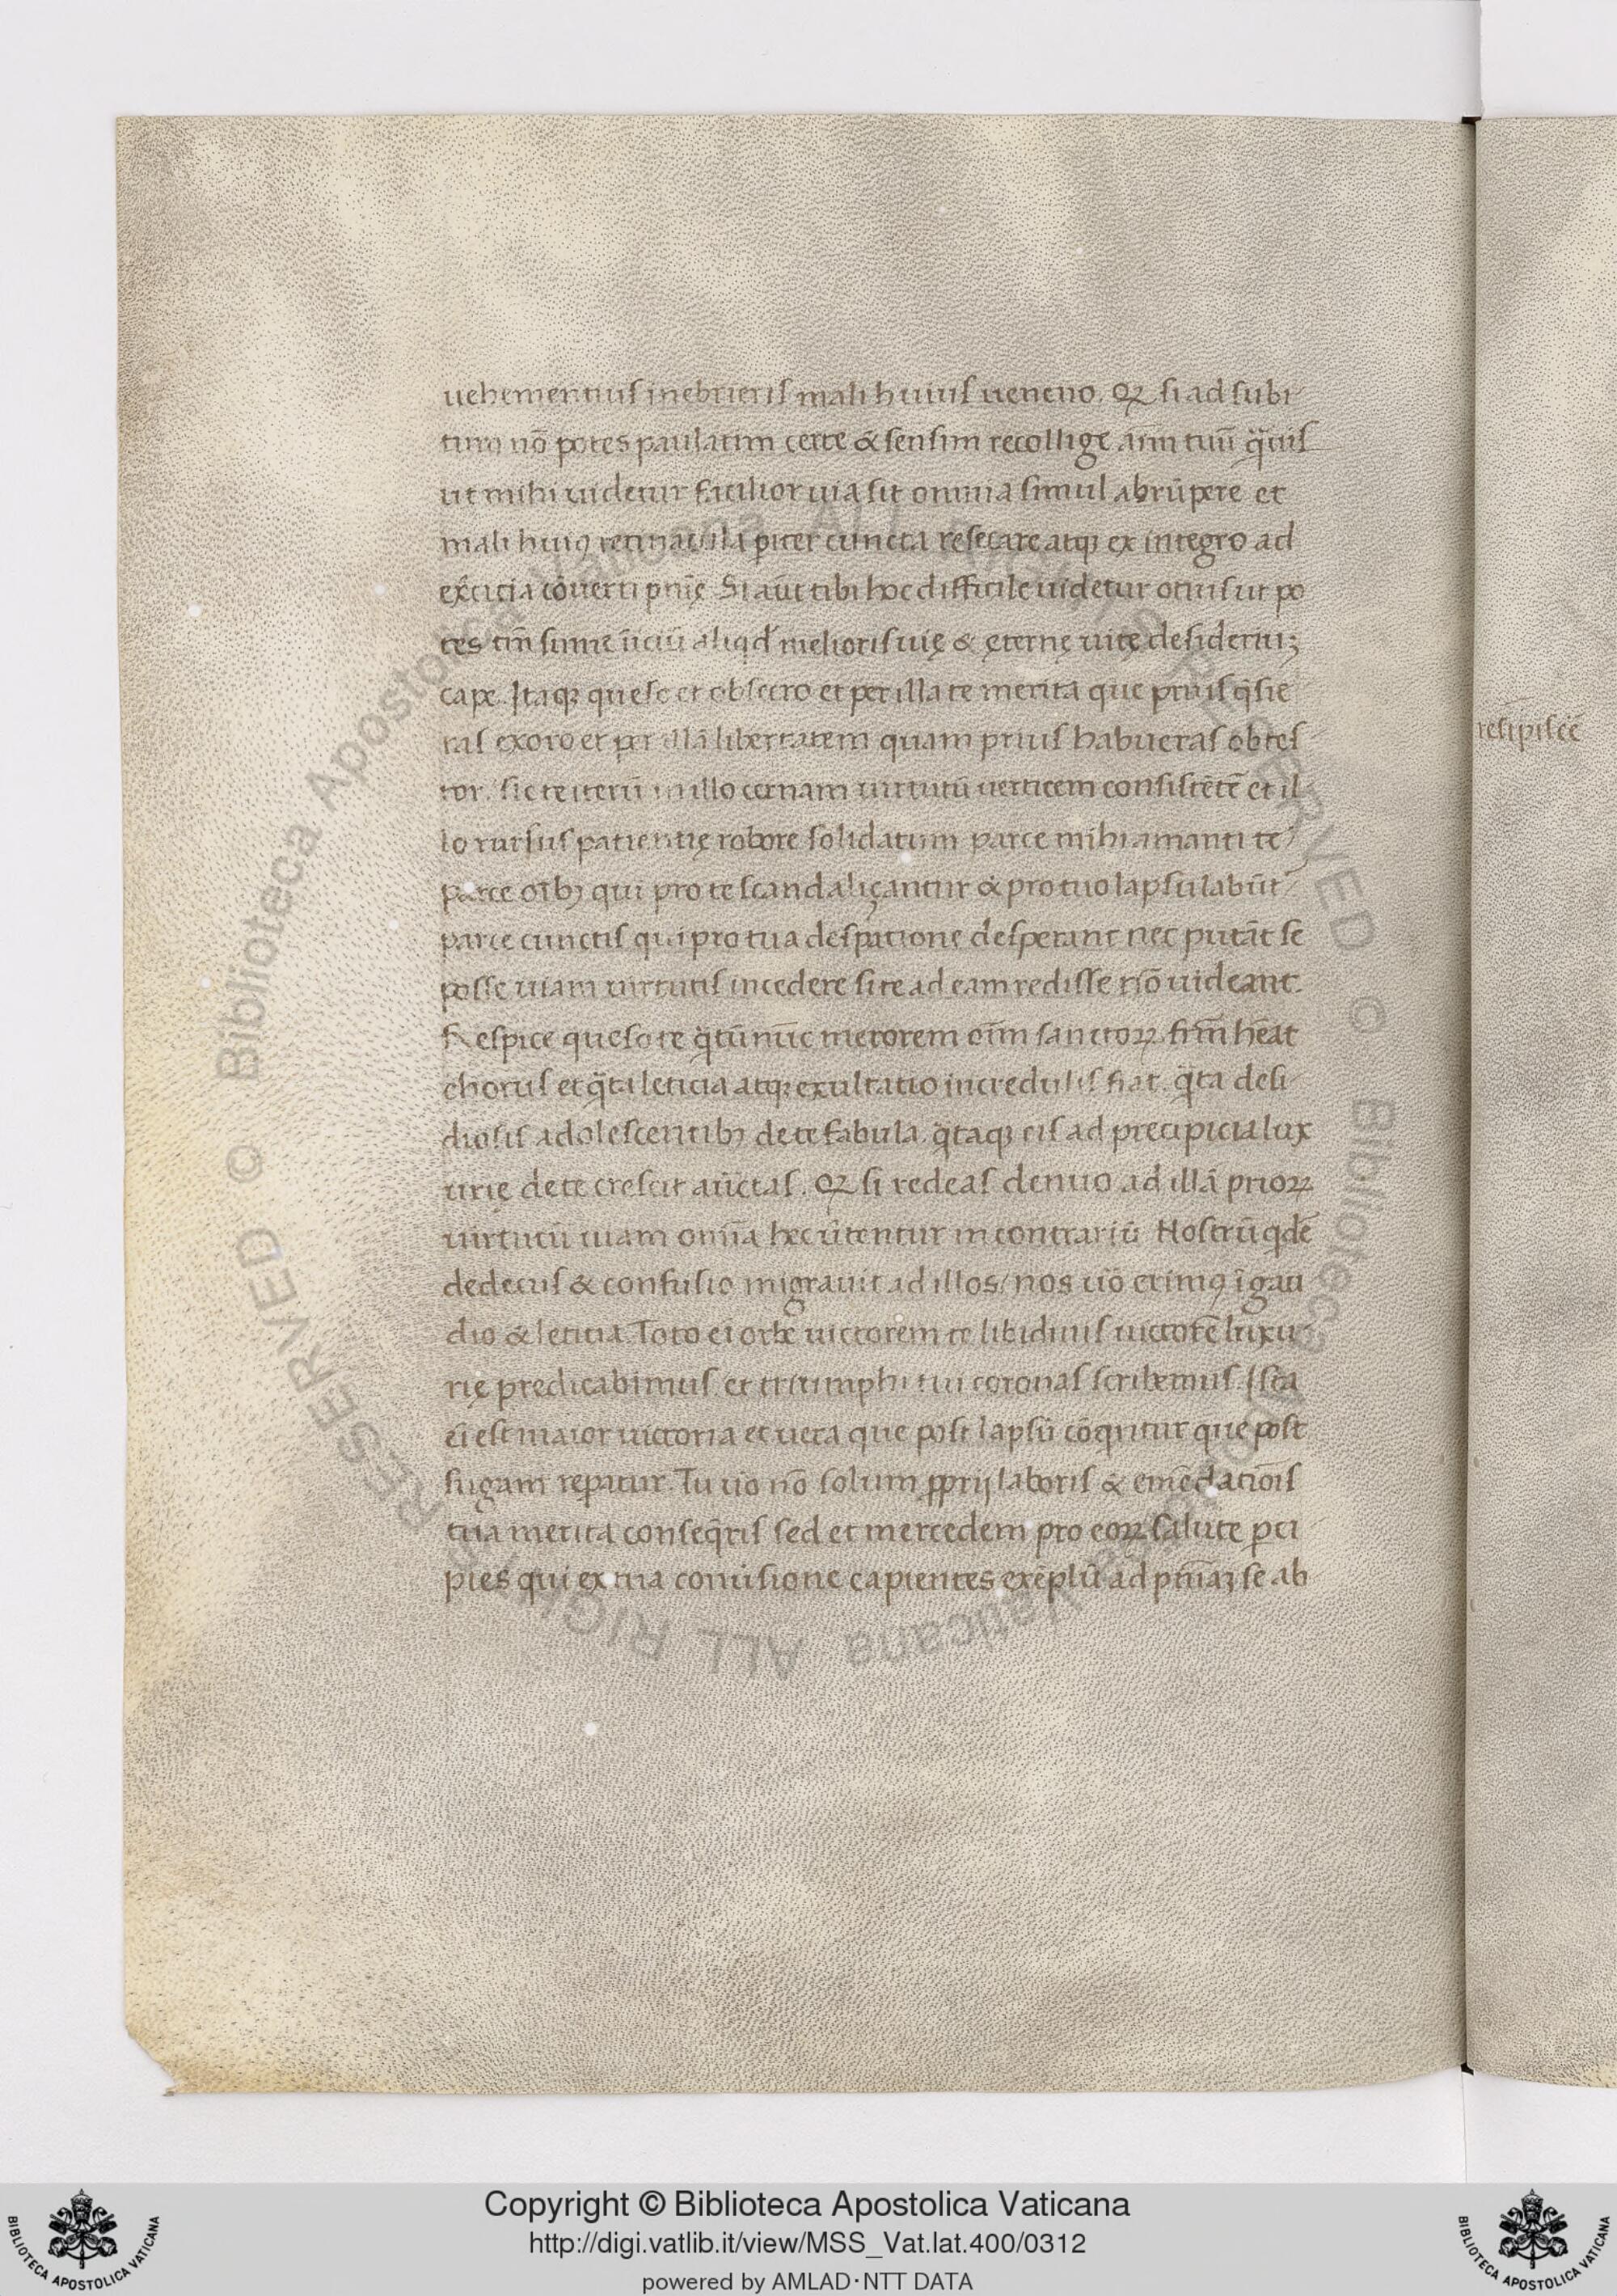 uehementius inebrieris mali huius ueneno. Qꝫ si ad subi
tum nō potes paulatim certe & sensim recollige aīm tuū q̄uis
ut mihi uidetur facilior uia sit omnia simul abrūpere et
mali huiꝰ retinacula pīter cuncta resecare atqꝫ ex integro ad
ex̄citia cōuerti pnīę. Si aūt tibi hoc difficile uidetur ocius ut po
tes tm̄ sume īiciū aliqd melioris uię & ęternę uitę desideriuꝫ
cape. Itaqꝫ queso et obsecro et per illa te merita que prius q̄sie
ras exoro et per illā libertatem quam prius habueras obtes
tor. sic te iterū in illo cernam uirtutū uerticem consistētē et il
lo rursus patientię robore solidatum parce mihi amanti te
parce oībꝫ qui pro te scandaliçantur & pro tuo lapsu labūt
parce cunctis qui pro tua despatione desperant nec putāt se
posse uiam uirtutis incedere si te ad eam redisse nō uideant.
Respice queso te q̄tū nūc merorem oīm sanctoꝝ frm̄ hēat
chorus et q̄ta leticia atqꝫ exultatio incredulis fiat. q̄ta desi
diosis adolescentibꝫ de te fabula. q̄taqꝫ eis ad precipicia lux
urię de te crescit aūctas. Qꝫ si redeas denuo ad illā prioꝝ
uirtutū uiam omīa hec ūtentur in contrariū Nostrū qdē
dedecus & confusio migrauit ad illos/ nos uō erimꝰ ī gau
dio & letitia. Toto eī orbe uictorem te libidinis uictorē luxu
rię predicabimus. et triumphi tui coronas scribemus. Ista
eī est maior uictoria et uera que post lapsū cōqritur que post
fugam repatur. Tu uō nō solum pprij laboris & emēdatiōis
tua merita conseq̄ris sed et mercedem pro eoꝝ salute pci
pies qui ex tua conūsione capientes exēplū ad pnīaꝫ se ab
resipiscē
Copyright © Biblioteca Apostolica Vaticana
http://digi.vatlib.it/view/MSS_Vat.lat.400/0312
powered by AMLAD·NTT DATA
BIBLIOTECA APOSTOLICA VATICANA
BIBLIOTECA APOSTOLICA VATICANA